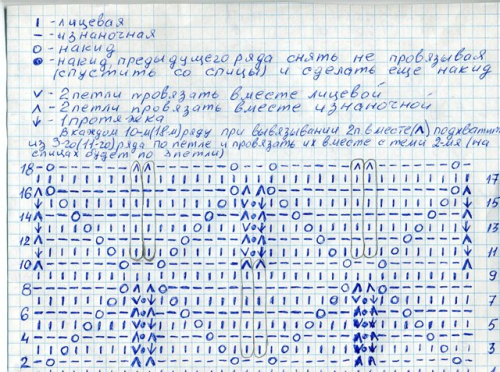 I - лицевая
— - изнаночная
О - накид
● - накид предыдущего ряда снять не провязывая
(спустить со спицы) и сделать еще накид
V - 2 петли провязать вместе лицевой
Λ - 2 петли провязать вместе изнаночной
↓ - 1 протяжка
В каждом 10-м(18м) ряду при вывязывании 2п. вместе(Λ) подхватить
из 3-го(11-го) ряда по петле и провязать их вместе с теми 2-мя (на
спицах будет по 3 петли)
18
17
16
15
14
13
12
11
10
9
8
7
6
5
4
3
2